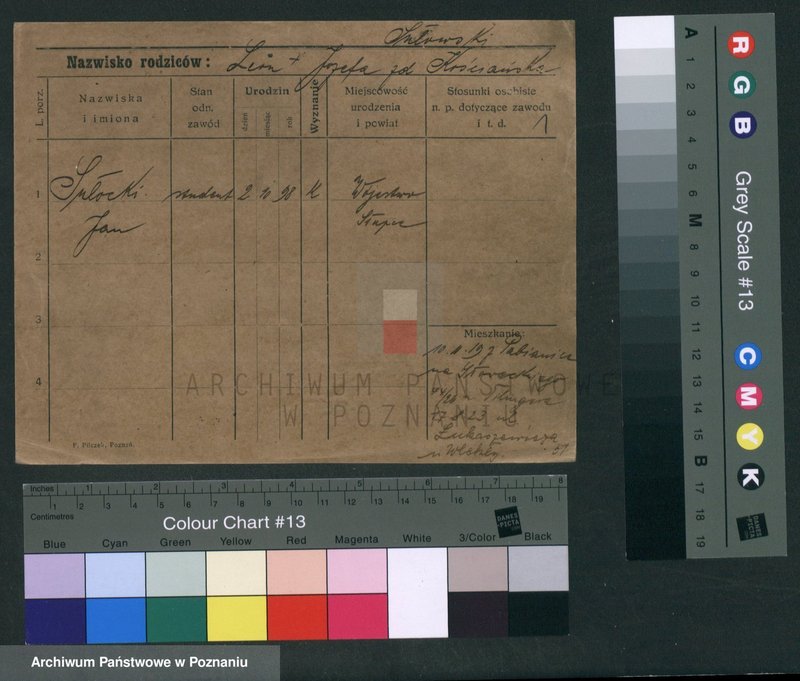 Nazwisko rodziców: Leon + Józefa zd
L. porz.
Nazwiska i imiona
Stan odn. zawód
Urodzin
dzień
miesiąc
rok
Wyznanie
Miejscowość urodzenia i powiat
Stosunki osobiste n. p. dotyczące zawodu i t. d. 1
1
student 2 10 98 k
Jan
Słupca
2
3
Mieszkanie:
z Pabianice
na
4
Łukaszewicza
F. Pilczek, Poznań.
ARCHIWUM PAŃSTWOWE
W POZNANIU
Inches 1 2 3 4 5 6 7 8
Centimetres 1 2 3 4 5 6 7 8 9 10 11 12 13 14 15 16 17 18 19
Colour Chart #13
DANES PICTA .COM
Blue Cyan Green Yellow Red Magenta White 3/Color Black
Grey Scale #13
A 1 2 3 4 5 6 M 8 9 10 11 12 13 14 15 B 17 18 19
R G B
C M Y K
DANES PICTA .COM
Archiwum Państwowe w Poznaniu